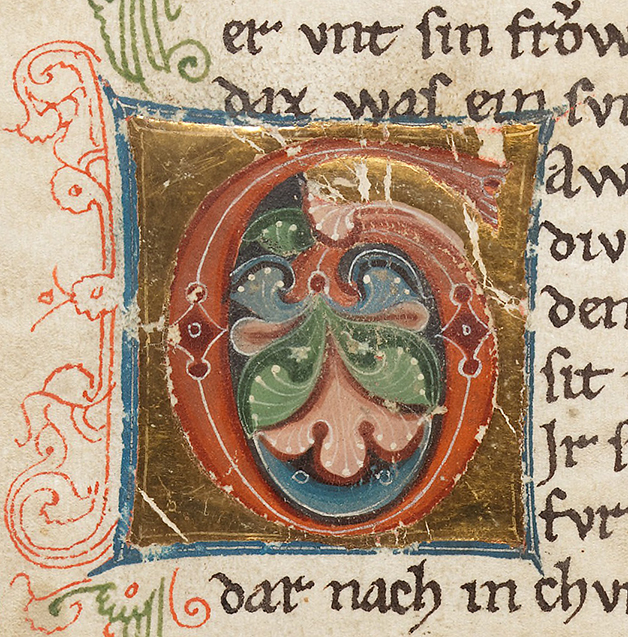 er vnt sin frow
dax was ein svn
G
Aw
div
den
sit
Jr s
fvr
dar nach in chvn